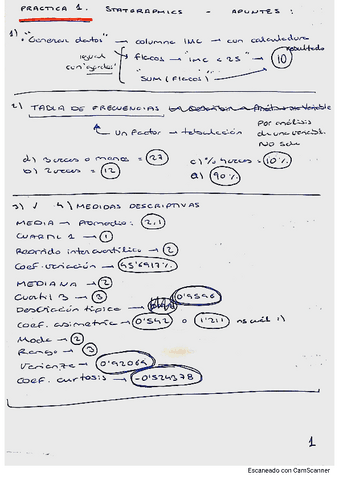 PRACTICA 1. STATGRAPHICS - APUNTES:
1) • "Generar datos" → columna IMC → con calculadora
igual con "agudos" flacos → "IMC < 25" → 10 resultado
"SUM (flacos)"
2) TABLA DE FRECUENCIAS
un factor → tabulación Por análisis de una variabl. NO sale
d) 3 veces o menos = 27 c) % 4 veces = 10%
b) 2 veces = 12 a) 90%
3) ✓ 4) MEDIDAS DESCRIPTIVAS
MEDIA → Promedio: 2,1
CUARTIL 1 → 1
Recorrido intercuartílico → 2
Coef. variación → 45'6917%
MEDIANA → 2
Cuartil 3 → 3
Desviación típica → 0'9596
Coef. asimetría → 0'542 o 1'211
Moda → 2
Rango → 3
Varianza → 0'92069
Coef. curtosis → -0'524378
1
Escaneado con CamScanner